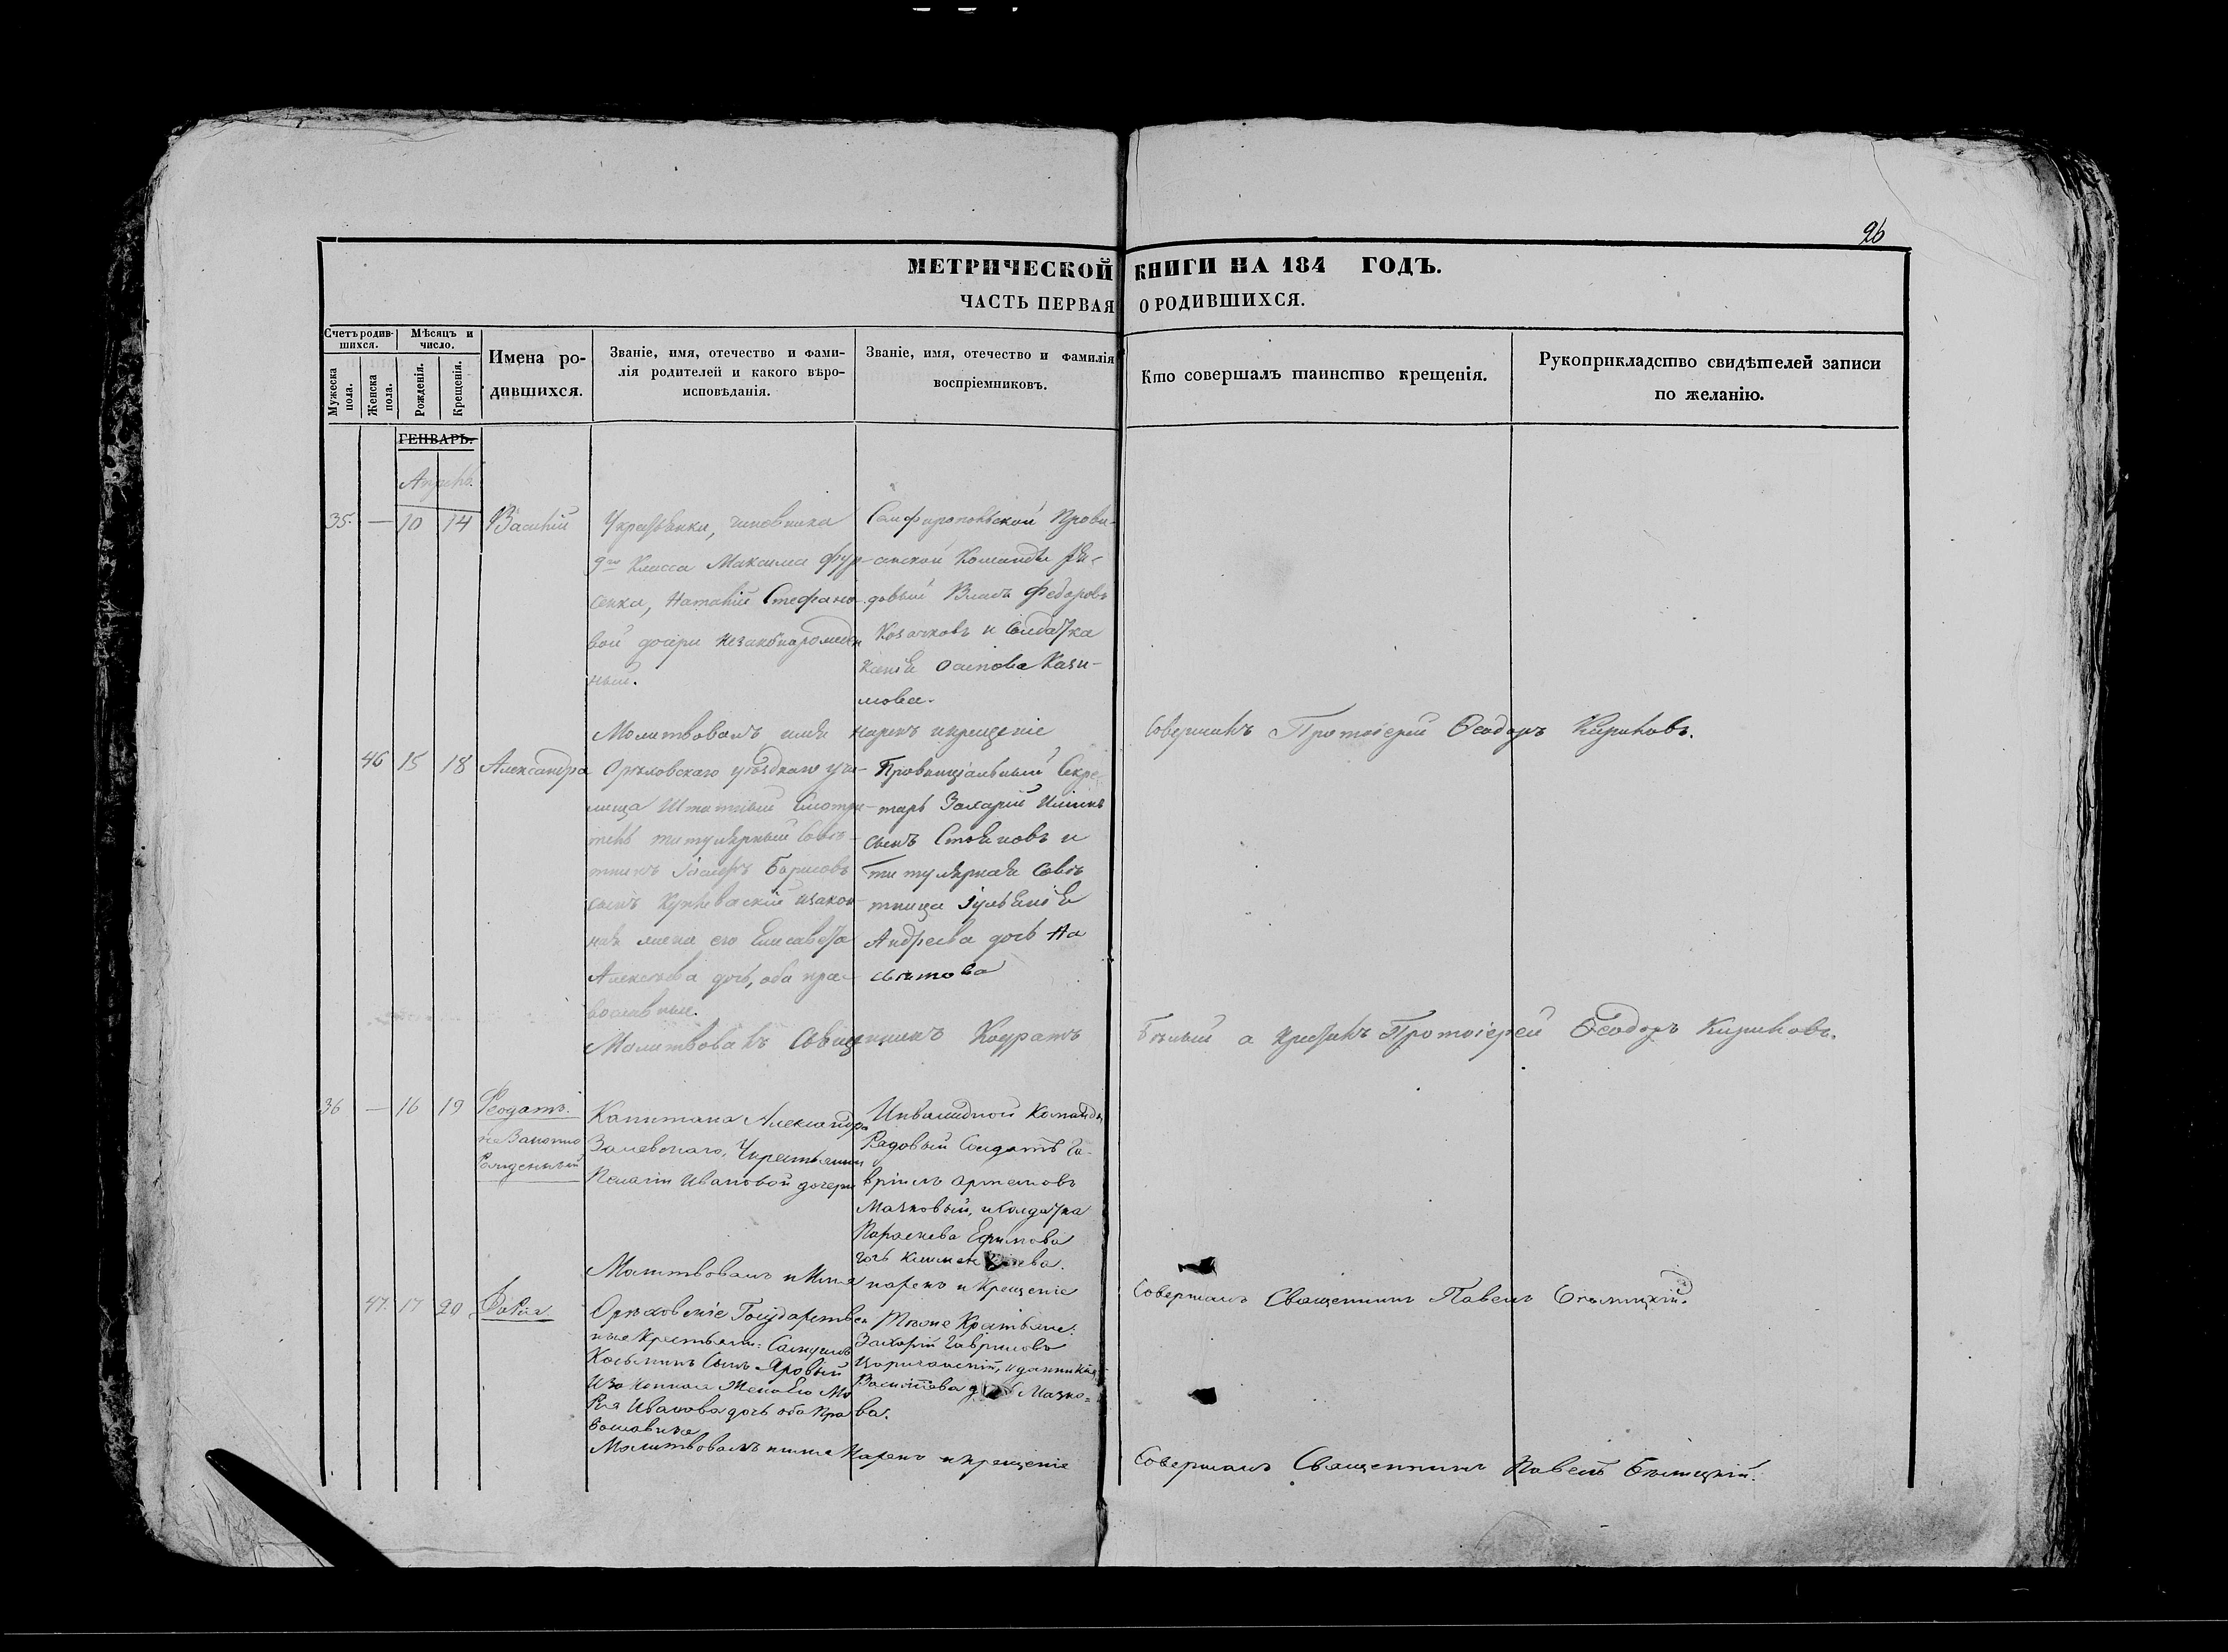 26
МЕТРИЧЕСКОЙ КНИГИ НА 184 ГОДЪ.
ЧАСТЬ ПЕРВАЯ О РОДИВШИХСЯ.
Счетъ родившихся.
Мѣсяцъ и число.
Мужеска пола.
Женска пола.
Рожденія.
Крещенія.
Имена родившихся.
Званіе, имя, отечество и фамилія родителей и какого вѣроисповѣданія.
Званіе, имя, отечество и фамилія воспріемниковъ.
Кто совершалъ таинство крещенія.
Рукоприкладство свидѣтелей записи по желанію.
ГЕНВАРЬ.
Апрель.
35. — 10 14 Василій
чиновника
9го Класса Максима Фур-
сенка, Наталіи Стефано-
вой дочери незаконорожден
ный.
Симферопольской Прови-
антской Команды Ря-
довый Власъ Федоровъ
Козачковъ и Солдатка
Ксенія Осипова Кази-
мова.
Молитвовалъ имя нарекъ и крещеніе
Совершилъ Протоіерей Ѳеодоръ Кириловъ.
46 15 18 Александра
Орѣховскаго уѣзднаго учи-
лища Штатный Смотри-
тель титулярный Совѣ-
тникъ Іосифъ Борисовъ
сынъ изакон-
ная жена его Елисавета
Алексѣева дочь, оба пра-
вославные.
Провинціальный Секре-
тарь Захарій
сынъ Стояновъ и
титулярная Совѣ-
тница Іуліанія
Андреева дочь
Молитвовалъ Священникъ Кондратъ
Бѣлый а крестилъ Протоіерей Ѳеодоръ Кириловъ.
36 — 16 19 Феодотъ.
не Законно
Рожденный
Капитана Александра
Залевскаго,
Пелагіи Ивановой дочери
Инвалидной Команды
Рядовый Солдатъ Га-
вріилъ Артемовъ
Мазковый, и Солдатка
Параскева Ефимова
дочь
Молитвовалъ и Имя нарекъ и Крещеніе
Совершалъ Священникъ Павелъ Бѣлицкій.
47. 17 20 Софія.
Орѣховскіе Государствен
ные Крестьяне: Самуилъ
Косьминъ Сынъ Яровый
Изаконная Жена Его Ма
рія Иванова дочь оба Пра
вославные
Тѣже Крестьяне:
Захарій Гавриловъ
Царичанскій,
Василіева Мазко=
ва.
Молитвовалъ и имя Нарекъ и крещеніе
Совершалъ Священникъ Павелъ Бѣлицкій.